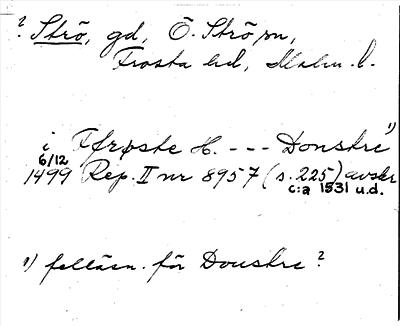 ? Strö, gd, Ö. Strö sn,
Frosta hd, Malm. l.
i Ffrøste H. --- Donstre 1)
6/12
1499 Rep. II nr 8957 (s. 225) avskr
c:a 1531 u.d.
1) felläsn. för Doustre ?